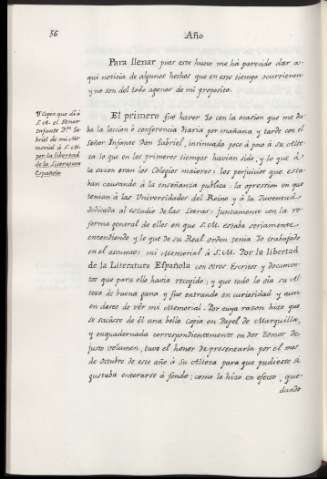 56
Año
Para llenar pues este hueco me há parecido dar a-
qui noticia de algunos hechos que en este tiempo ocurrieron
y no son del todo agenos de mi proposito.
Copia que dí á
S. A. el Señor
Infante Dn. Ga-
briel de mi Me-
morial á S. M.
por la libertad
de la Literatura
Española
El primero fué haver yo con la ocasion que me da-
ba la leccion ó conferencia diaria por mañana y tarde con el
Señor Infante Don Gabriel, insinuado poco á poco á su Alte-
za lo que en los primeros tiempos havian sido, y lo que á
la sazon eran los Colegios maiores: los perjuicios que esta-
ban causando á la enseñanza publica: la opresion en que
tenian á las Universidades del Reino y á la Juventud
dedicada al estudio de las Letras: juntamente con la re-
forma general de ellos en que S. M. estaba seriamente
entendiendo y lo que de su Real orden tenia yo trabajado
en el assunto: mi Memorial á S. M. Por la libertad
de la Literatura Española con otros Escritos y documen-
tos que para ello havia recogido; y que todo lo oia su Al-
teza de buena gana y fue entrando en curiosidad y aun
en deseo de vér mi Memorial. Por cuya razon hize que
se sacasse de él una bella copia en Papel de Marquilla,
y enquadernada correspondientemente en dos Tomos de
justo volumen, tuve el honor de presentarla por el mes
de Octubre de este año á su Alteza para que pudiesse á
gusto enterarse á fondo; como lo hizo en efecto, que-
dando